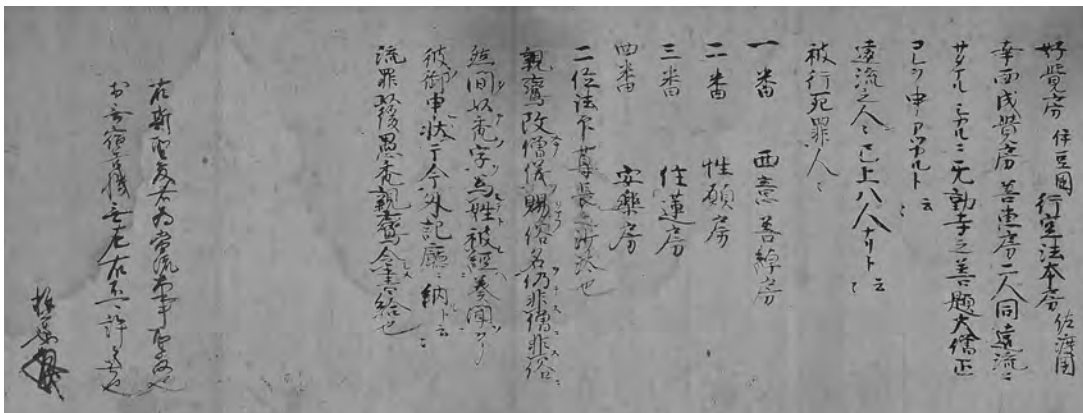 好覺房 伊豆国 行空法本房 佐渡国
幸西成覺房 善恵房二人同遠流ニ
サタマル シカルニ 无動寺之善題大僧正
コレヲ申アツカルト 云〻
遠流之人〻已上八人ナリト 云〻
被行死罪人〻
一番 西意善綽房
二番 性願房
三番 住蓮房
四番 安樂房
二位法印尊長之沙汰也
親鸞改僧儀賜俗名仍非僧非俗
然間以禿字為姓被経奏聞了
彼御申状于今外記廳ニ納ルト 云〻
流罪以後愚禿親鸞令書給也
右斯聖教者為當流大事聖教也
於无宿善機无左右不可許之者也